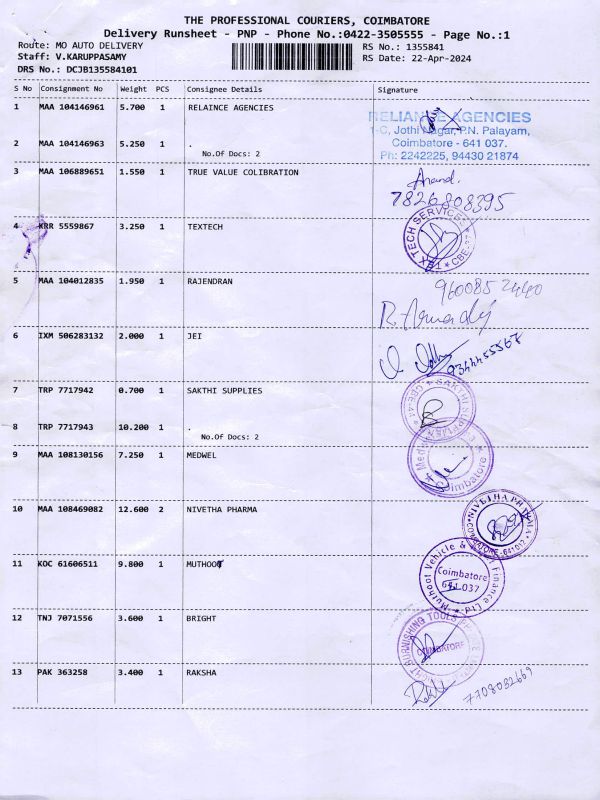 THE PROFESSIONAL COURIERS, COIMBATORE
Delivery Runsheet - PNP - Phone No.:0422-3505555 - Page No.:1
Route: MO AUTO DELIVERY
RS No.: 1355841
Staff: V.KARUPPASAMY
RS Date: 22-Apr-2024
DRS No.: DCJB135584101
S No Consignment No Weight PCS Consignee Details Signature
1 MAA 104146961 5.700 1 RELAINCE AGENCIES
RELIANCE AGENCIES
1-C, Jothi Nagar, P.N. Palayam,
2 MAA 104146963 5.250 1 .
Coimbatore - 641 037.
No.Of Docs: 2
Ph: 2242225, 94430 21874
3 MAA 106889651 1.550 1 TRUE VALUE COLIBRATION
Anand.
7826808395
4 KRR 5559867 3.250 1 TEXTECH
TECH SERVICES
5 MAA 104012835 1.950 1 RAJENDRAN
9600852440
6 IXM 506283132 2.000 1 JEI
9344455567
7 TRP 7717942 0.700 1 SAKTHI SUPPLIES
SAKTHI SUPPLIERS
8 TRP 7717943 10.200 1 .
No.Of Docs: 2
9 MAA 108130156 7.250 1 MEDWEL
Coimbatore
10 MAA 108469082 12.600 2 NIVETHA PHARMA
NIVETHA PHARMA
COIMBATORE - 641012
11 KOC 61606511 9.800 1 MUTHOOT
Muthoot Vehicle & Asset Finance Ltd
Coimbatore
641 037
12 TNJ 7071556 3.600 1 BRIGHT
BURNISHING TOOLS
COIMBATORE
13 PAK 363258 3.400 1 RAKSHA
7708082669